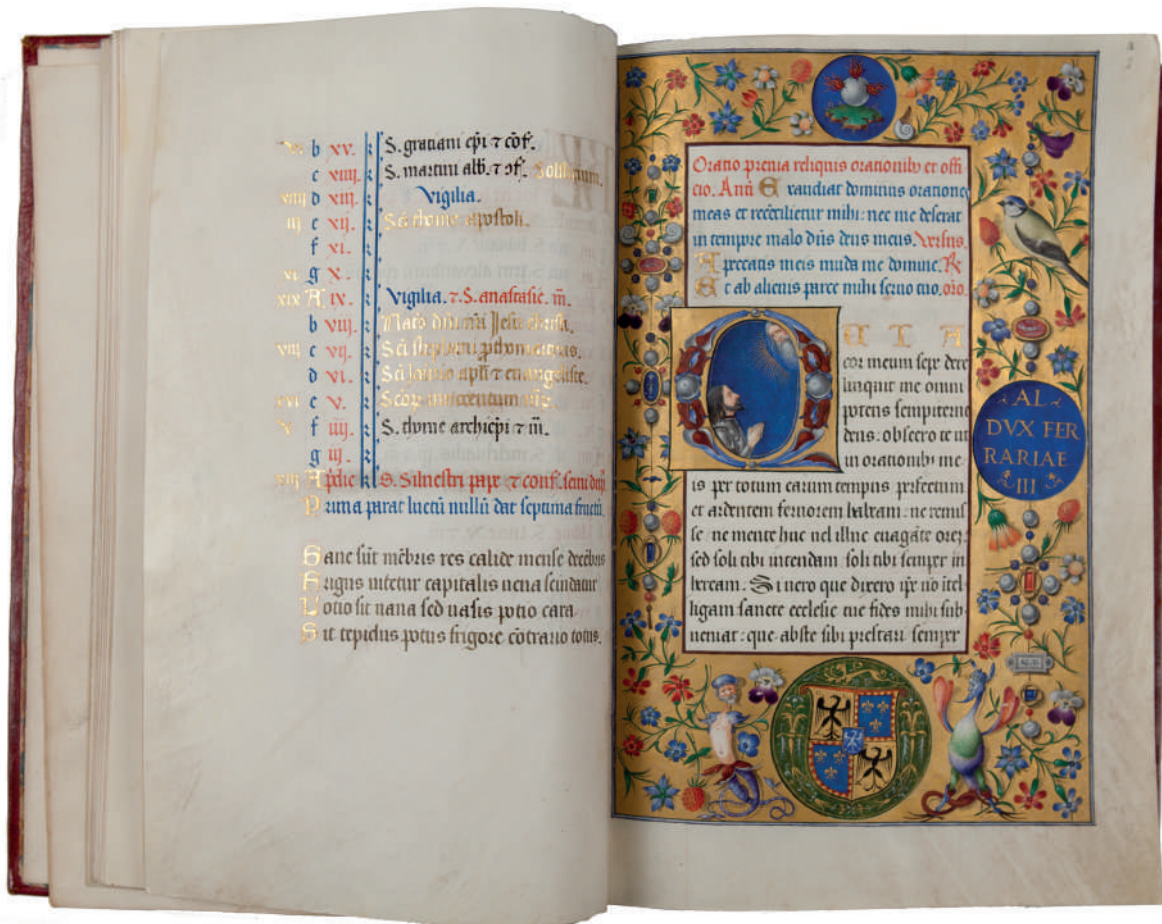 b xv. k S. gratiani ep̄i ⁊ cōf.
c xiiij. k S. martini abb. ⁊ ɔf.
xiiij d xiij. k Vigilia.
ij c xij. k Sc̄i thome apostoli.
f xi. k
g x. k
xix A ix. k Vigilia. ⁊ S. anastasie. m̄.
b viij. k
viij c vij. k Sc̄i
d vi. k Sc̄i apl̄i ⁊ euangeliste.
xvi e v. k
f iiij. k S. thome archiep̄i ⁊ m̄.
g iij. k
A pridie k S. Siluestri pape ⁊ conf.
Prima parat luctū nullū dat septima fructū.
Sane sūt mēbris res calide mense decēbris
Frigus uitetur capitalis uena scindatur
Lotio sit uana sed uasis potio cara
Sit tepidus potus frigore cōtrario totus.
Oratio preuia reliquis orationib; et offi
cio. Anñ Exaudiat dominus orationes
meas et recōcilietur mihi: nec me deserat
in tempore malo dñs deus meus. Versus.
A peccatis meis munda me domine. R
Et ab alienis parce mihi seruo tuo. oro.
ETIA
cor meum sepe dere
linquit me omni
potens sempiterne
deus: obsecro te ut
in orationib; me
is per totum earum tempus perfectum
et ardentem feruorem habeam: ne remis
se ne mente huc uel illuc euagāte orem:
sed soli tibi intendam soli tibi semper in
heream. Si uero que dixero ip̄e nō ītel
ligam sancte ecclesie tue fides mihi sub
ueniat: que abste sibi prestari semper
AL
DVX FER
RARIAE
III